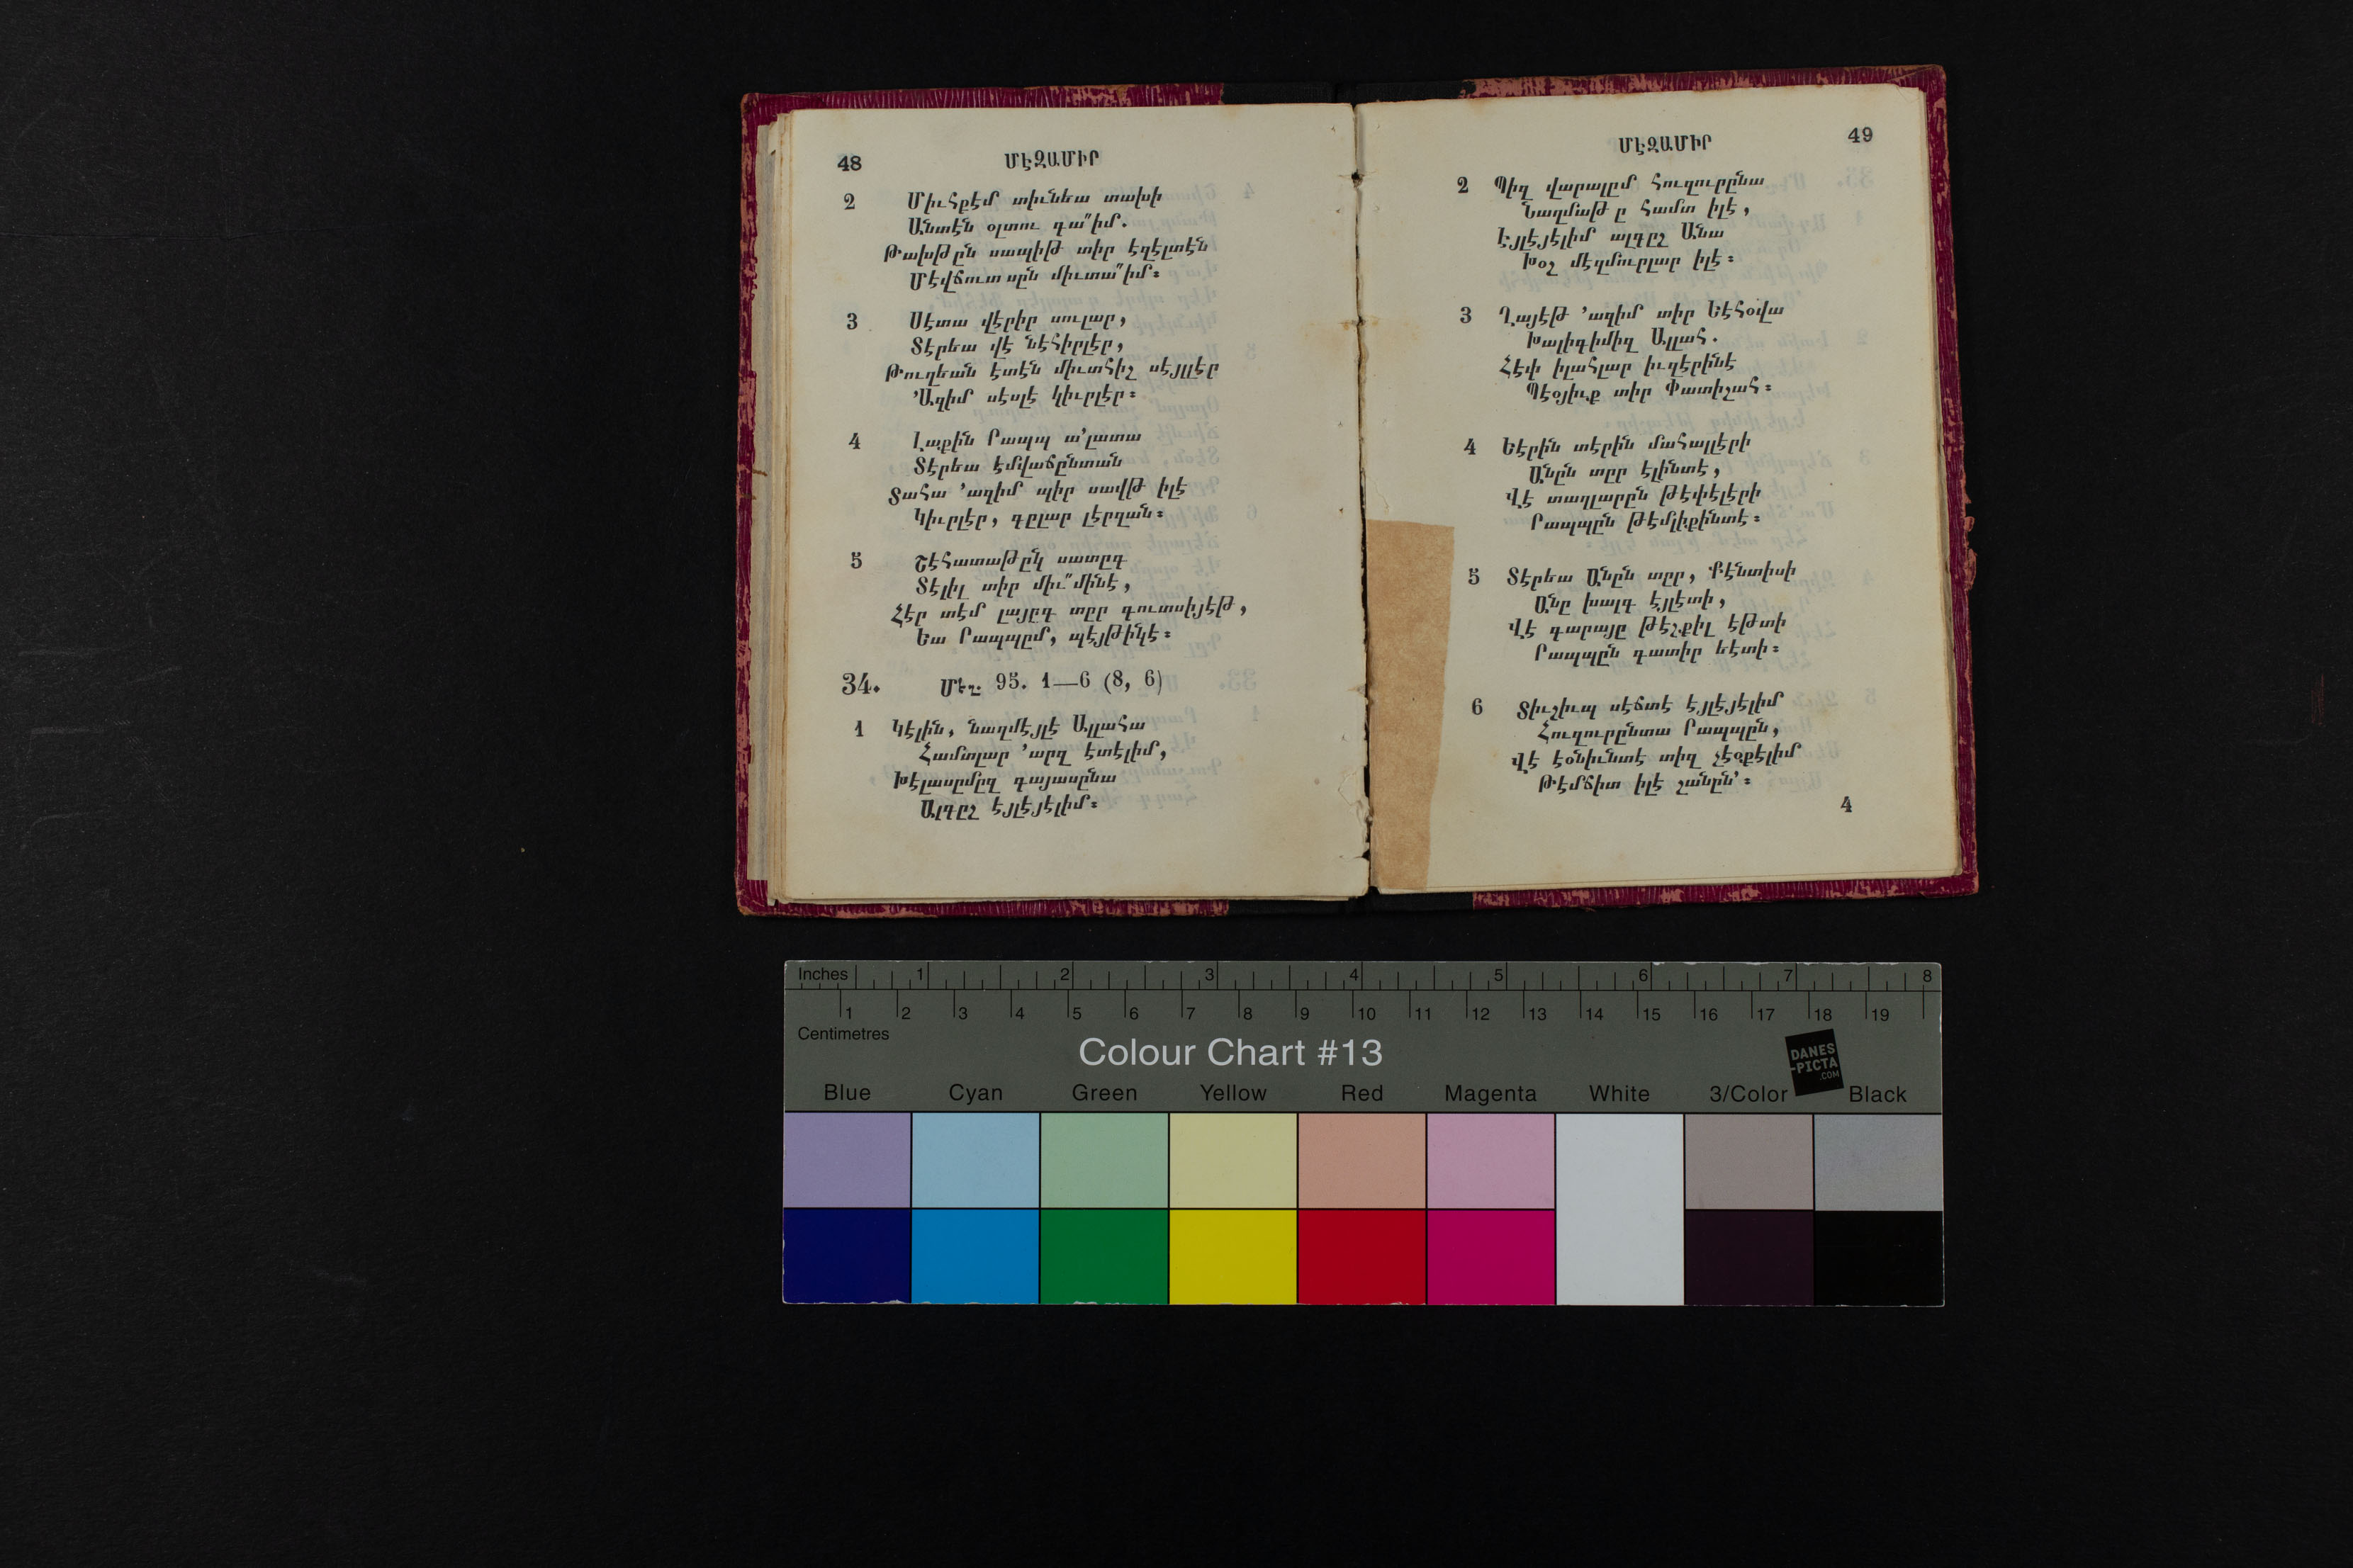 48 ՄԷԶԱՄԻՐ
2 Միւհքէմ տիւնեա տախի
Անտէն օլտու գա՞իմ.
Թախթըն սապիթ տիր էզէլտէն
Մէվճուտսըն միւտա՞իմ։
3 Սէտա վէրիր սուլար,
Տէրեա վէ նէհիրլէր,
Թուղեան էտէն միւտհիշ սէյլլէր
՚Ազիմ սէսլէ կիւրլէր։
4 Լաքին Րապպ ա՛լատա
Տէրեա էմվաճընտան
Տահա ՚ազիմ պիր սավթ իլէ
Կիւրլէր, գըլար լէրզան։
5 Շէհատաթըկ սատըգ
Տէլիլ տիր միւ՞մինէ,
Հէր տէմ լայըգ տըր գուտսիյէթ,
Եա Րապպըմ, պէյթիկէ։
34. Մէզ. 95. 1—6 (8, 6)
1 Կէլին, նաղմէյլէ Ալլահա
Համտլար ՚արզ էտէլիմ,
Խէլասըմըզ գայասընա
Ալգըշ էյլէյէլիմ։
ՄԷԶԱՄԻՐ 49
2 Պիզ վարալըմ հուզուրընա
Նաղմաթ ը համտ իլէ,
Էյլէյէլիմ ալգըշ Անա
Խօշ մէզմուրլար իլէ։
3 Ղայէթ ՚ազիմ տիր Եէհօվա
Խալիգիմիզ Ալլահ.
Հէփ իլահլար իւզէրինէ
Պէօյիւք տիր Փատիշահ։
4 Եէրին տէրին մահալլէրի
Անըն տըր էլինտէ,
Վէ տաղլարըն թէփէլէրի
Րապպըն թէմլիքինտէ։
5 Տէրեա Անըն տըր, Քէնտիսի
Անը խալգ էյլէտի,
Վէ գարայը թէշքիլ էթտի
Րապպըն գատիր եէտի։
6 Տիւշիւպ սէճտէ էյլէյէլիմ
Հուզուրընտա Րապպըն,
Վէ էօնիւնտէ տիզ չէօքէլիմ
Թէմճիտ իլէ շանըն՚։
4
Inches 1 2 3 4 5 6 7 8
1 2 3 4 5 6 7 8 9 10 11 12 13 14 15 16 17 18 19
Centimetres
Colour Chart #13
DANES
-PICTA
.COM
Blue Cyan Green Yellow Red Magenta White 3/Color Black